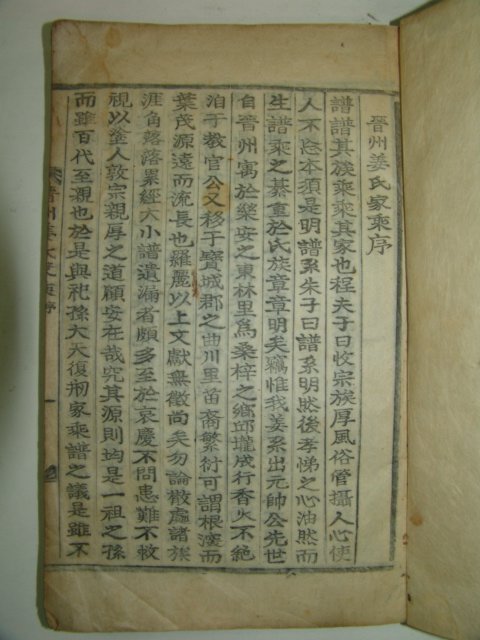 晉州姜氏家乘序
譜譜其族乘乘其家也程夫子曰收宗族厚風俗管攝人心使
人不忘本須是明譜系朱子曰譜系明然後孝悌之心油然而
生譜乘之綦重於氏族章章明矣竊惟我姜系出元帥公先世
自晉州寓於樂安之東林里爲桑梓之鄕邱壠成行香火不絶
泊于教官公又移于寶城郡之曲川里苗裔繁衍可謂根深而
葉茂源遠而流長也羅麗以上文獻無徵尚矣勿論散處諸族
涯角落落累經大小譜遺漏者頗多至於哀慶不問患難不救
視以塗人敦宗親厚之道顧安在哉究其源則均是一祖之孫
而雖百代至親也於是與祀孫大天復刱家乘譜之議是雖不
晉州姜氏家乘序
一